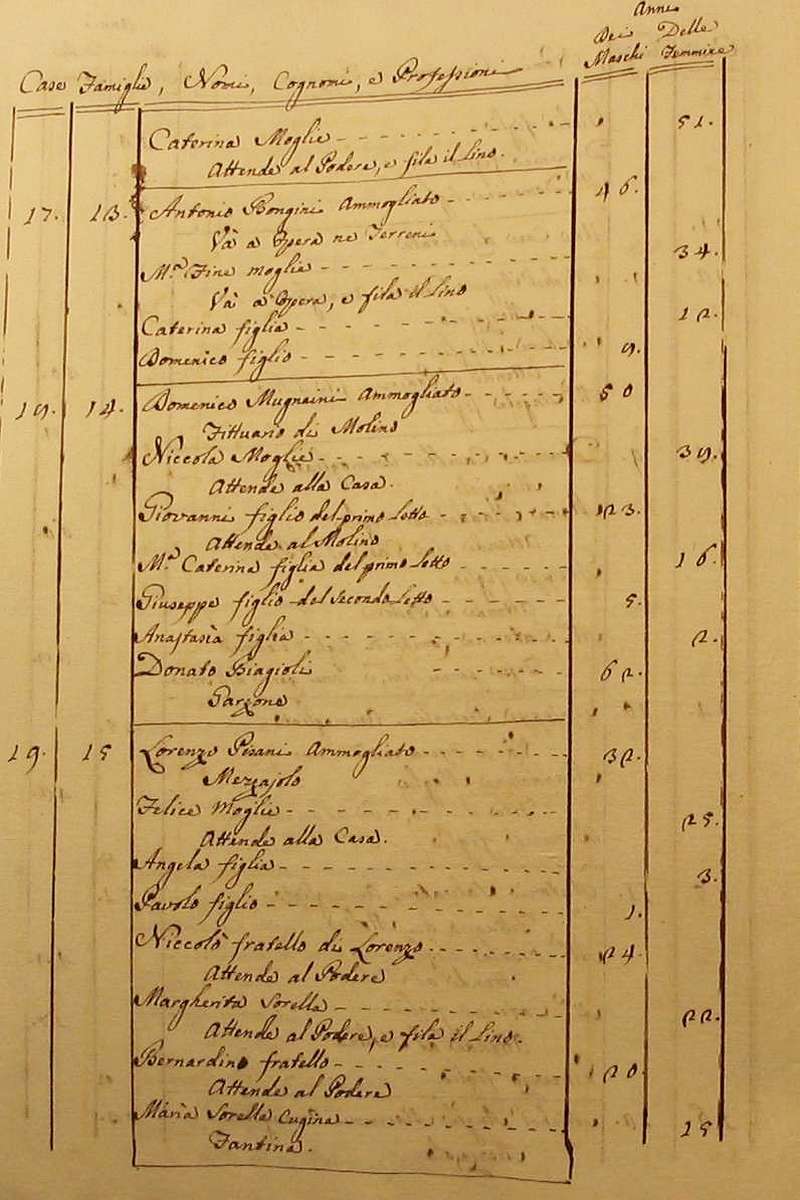 Anni
Case Famiglie, Nomi, Cognomi, e Professioni Dei Maschi Delle Femmine
Caterina Moglie 51.
Attende al Podere, e fila il Lino.
17. 13. Antonio Bongini Ammogliato 46.
Và a Opera ne Terreni
M.ª Fine moglie 34.
Và a Opera, e fila il Lino
Caterina figlia 12.
Domenico figlio 9.
19. 14. Domenico Mugnaini Ammogliato 50
Fittuario di Molino
Niccola Moglie 39.
Attende alla Casa.
Giovanni figlio del primo Letto 23.
Attende al Molino
M.ª Caterina figlia del primo Letto 16.
Giuseppe figlio del Secondo Letto 5.
Anastasia figlia 2.
Donato Biagioli 62.
Garzone
19. 15 Lorenzo Pesani Ammogliato 32.
Mezzajolo
Felice Moglie 25.
Attende alla Casa.
Angela figlia 3.
Pavolo figlio 1.
Niccolò fratello di Lorenzo 24.
Attende al Podere
Margherita Sorella 22.
Attende al Podere, e fila il Lino.
Bernardino fratello 20.
Attende al Podere
Maria Sorella Cugina 15
Fantina.